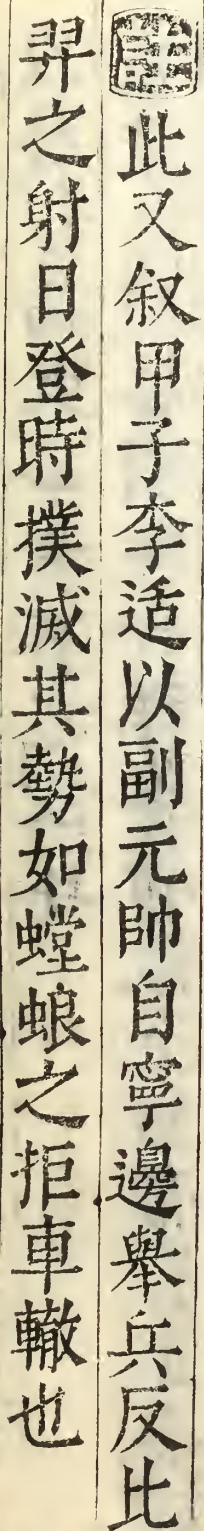 註此又叙甲子李适以副元帥自寧邊舉兵反比
羿之射日登時撲滅其勢如螳蜋之拒車轍也